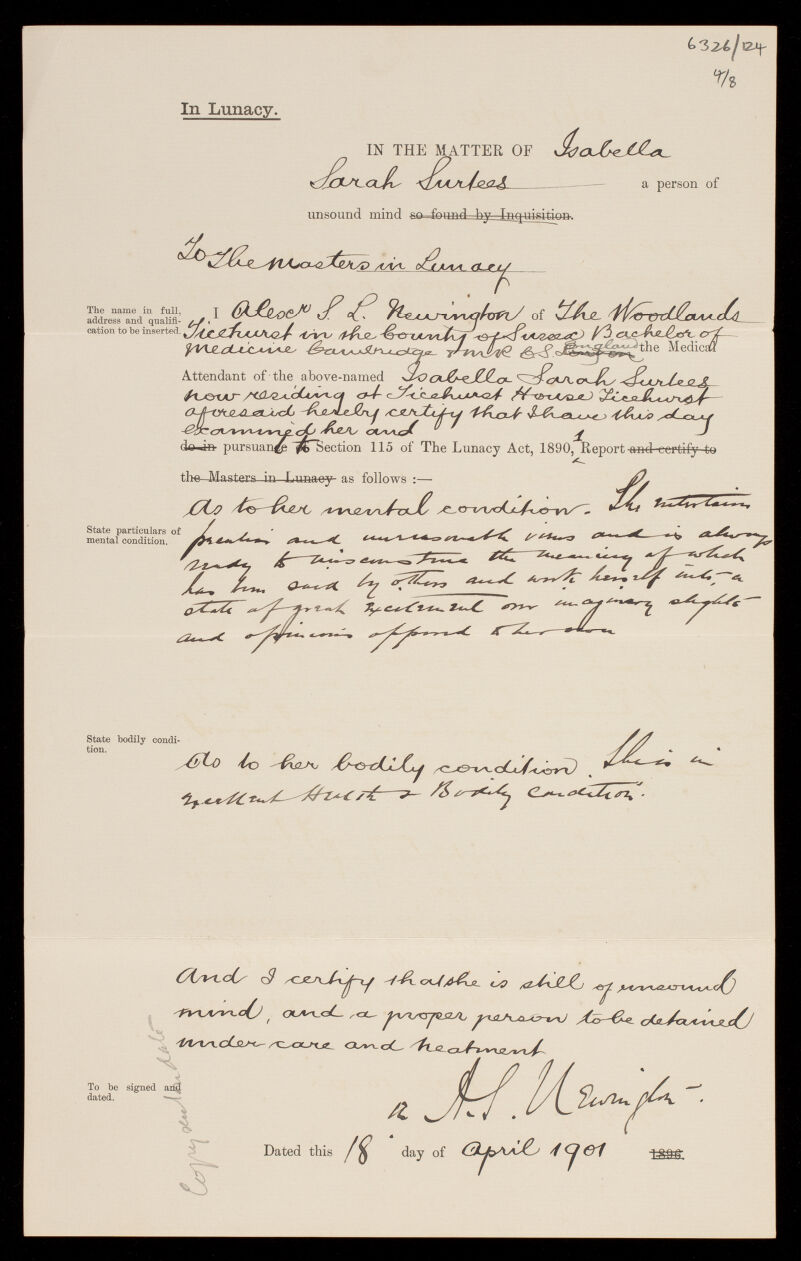 6326/124
4/8
In Lunacy.
IN THE MATTER OF Isabella
Sarah Surtees a person of
unsound mind so found by Inquisition.
To The Masters in Lunacy
The name in full, address and qualifi- cation to be inserted.
I Alexr S. L. Newington of The Woodlands
Ticehurst in the County of Sussex Bachelor of
Medicine Cambridge & M R C S London England the Medical
Attendant of the above-named Isabella Sarah Surtees
now residing at Ticehurst House Ticehurst
aforesaid hereby certify that I have this day
examined her and
do in pursuance to Section 115 of The Lunacy Act, 1890, I Report and certify to
the Masters in Lunacy as follows :—
State particulars of mental condition.
As to her mental condition. She entertains
peculiar and unreasonable views and is always
ready to misconstrue the meaning of which
has been said by others and work herself into a
state of great excitement over imaginary slights
and opinions opposed to her own
State bodily condi- tion.
As to her bodily condition. She is in
excellent Health & Bodily Condition.
And I certify that she is still of unsound
mind, and a proper person to be detained
under care and treatment
To be signed and dated.
A. S. Newington.
Dated this 18 day of April 1901 1896.
Copy sent